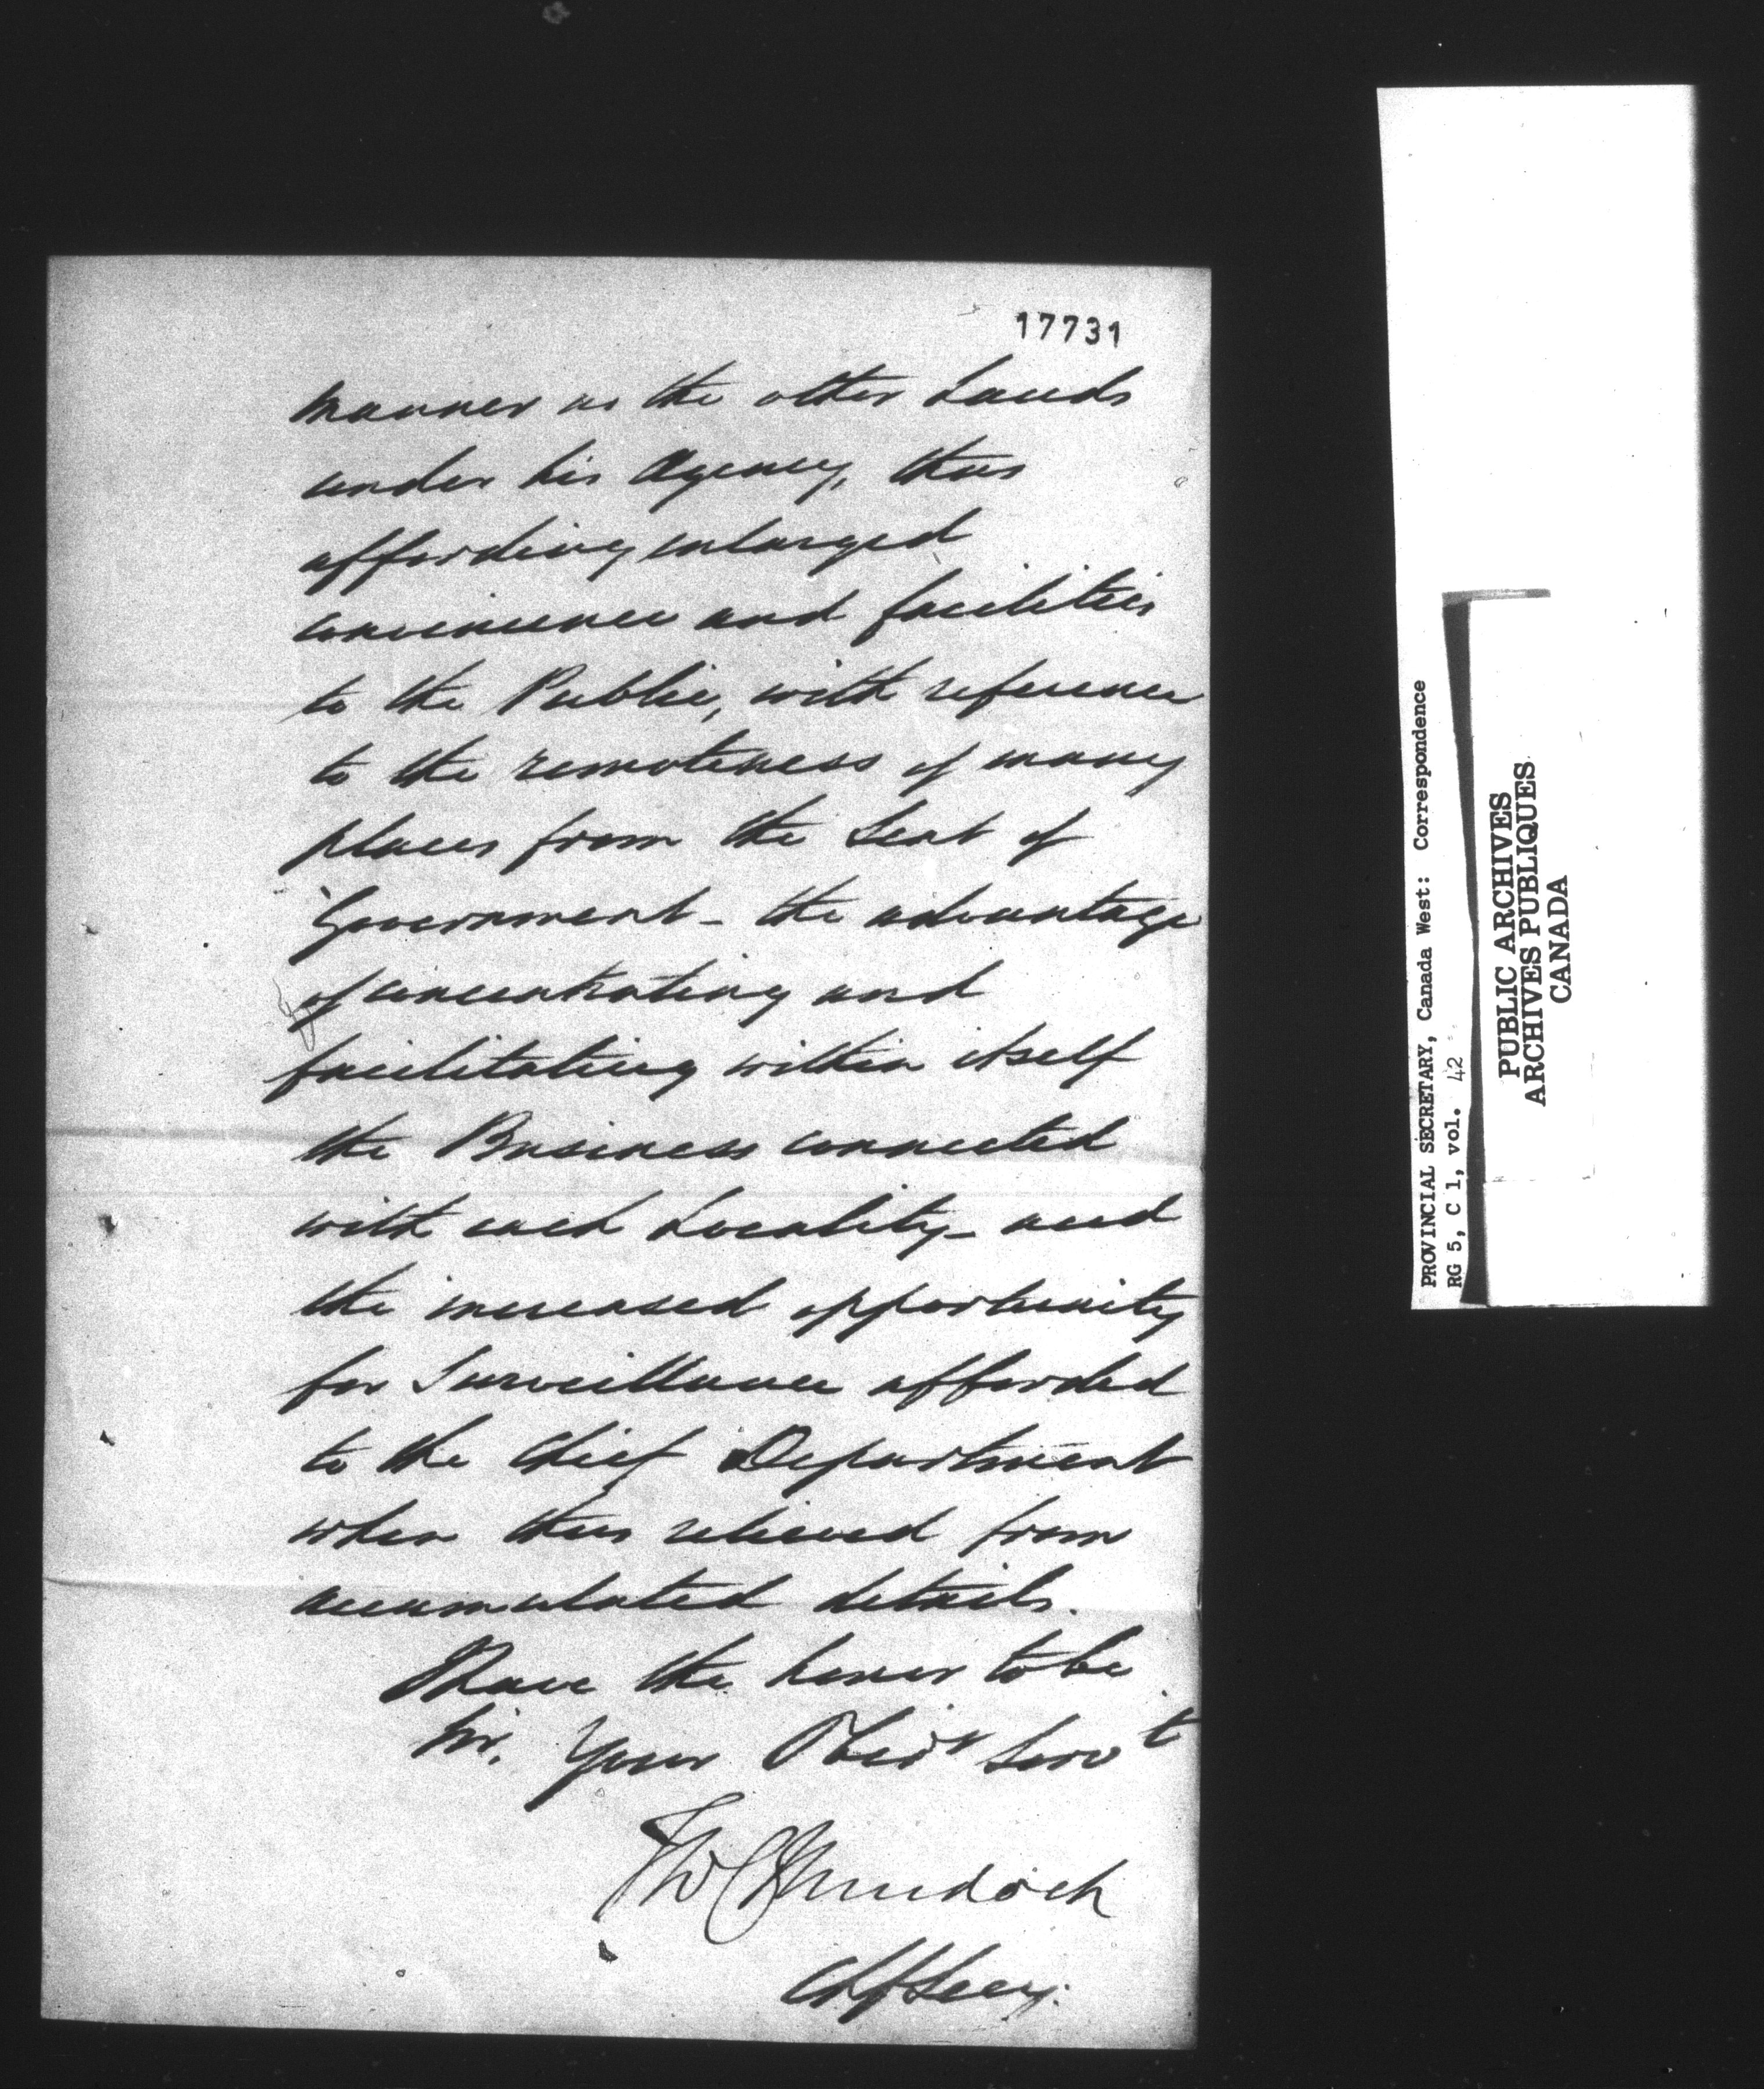 17731
manner as the other Lands
under his Agency, thus
affording enlarged
convenience and facilities
to the Public, with reference
to the remoteness of many
places from the Seat of
Government - the advantage
of concentrating and
facilitating within itself
the Business connected
with each Locality - and
the increased opportunity
for Surveillance afforded
to the Chief Department
when thus relieved from
accumulated details.
I have the honor to be
Sir, Your Obedt Servt
Murdoch
Ch Secy.
PROVINCIAL SECRETARY, Canada West: Correspondence
RG 5, C 1, vol. 42
PUBLIC ARCHIVES
ARCHIVES PUBLIQUES
CANADA